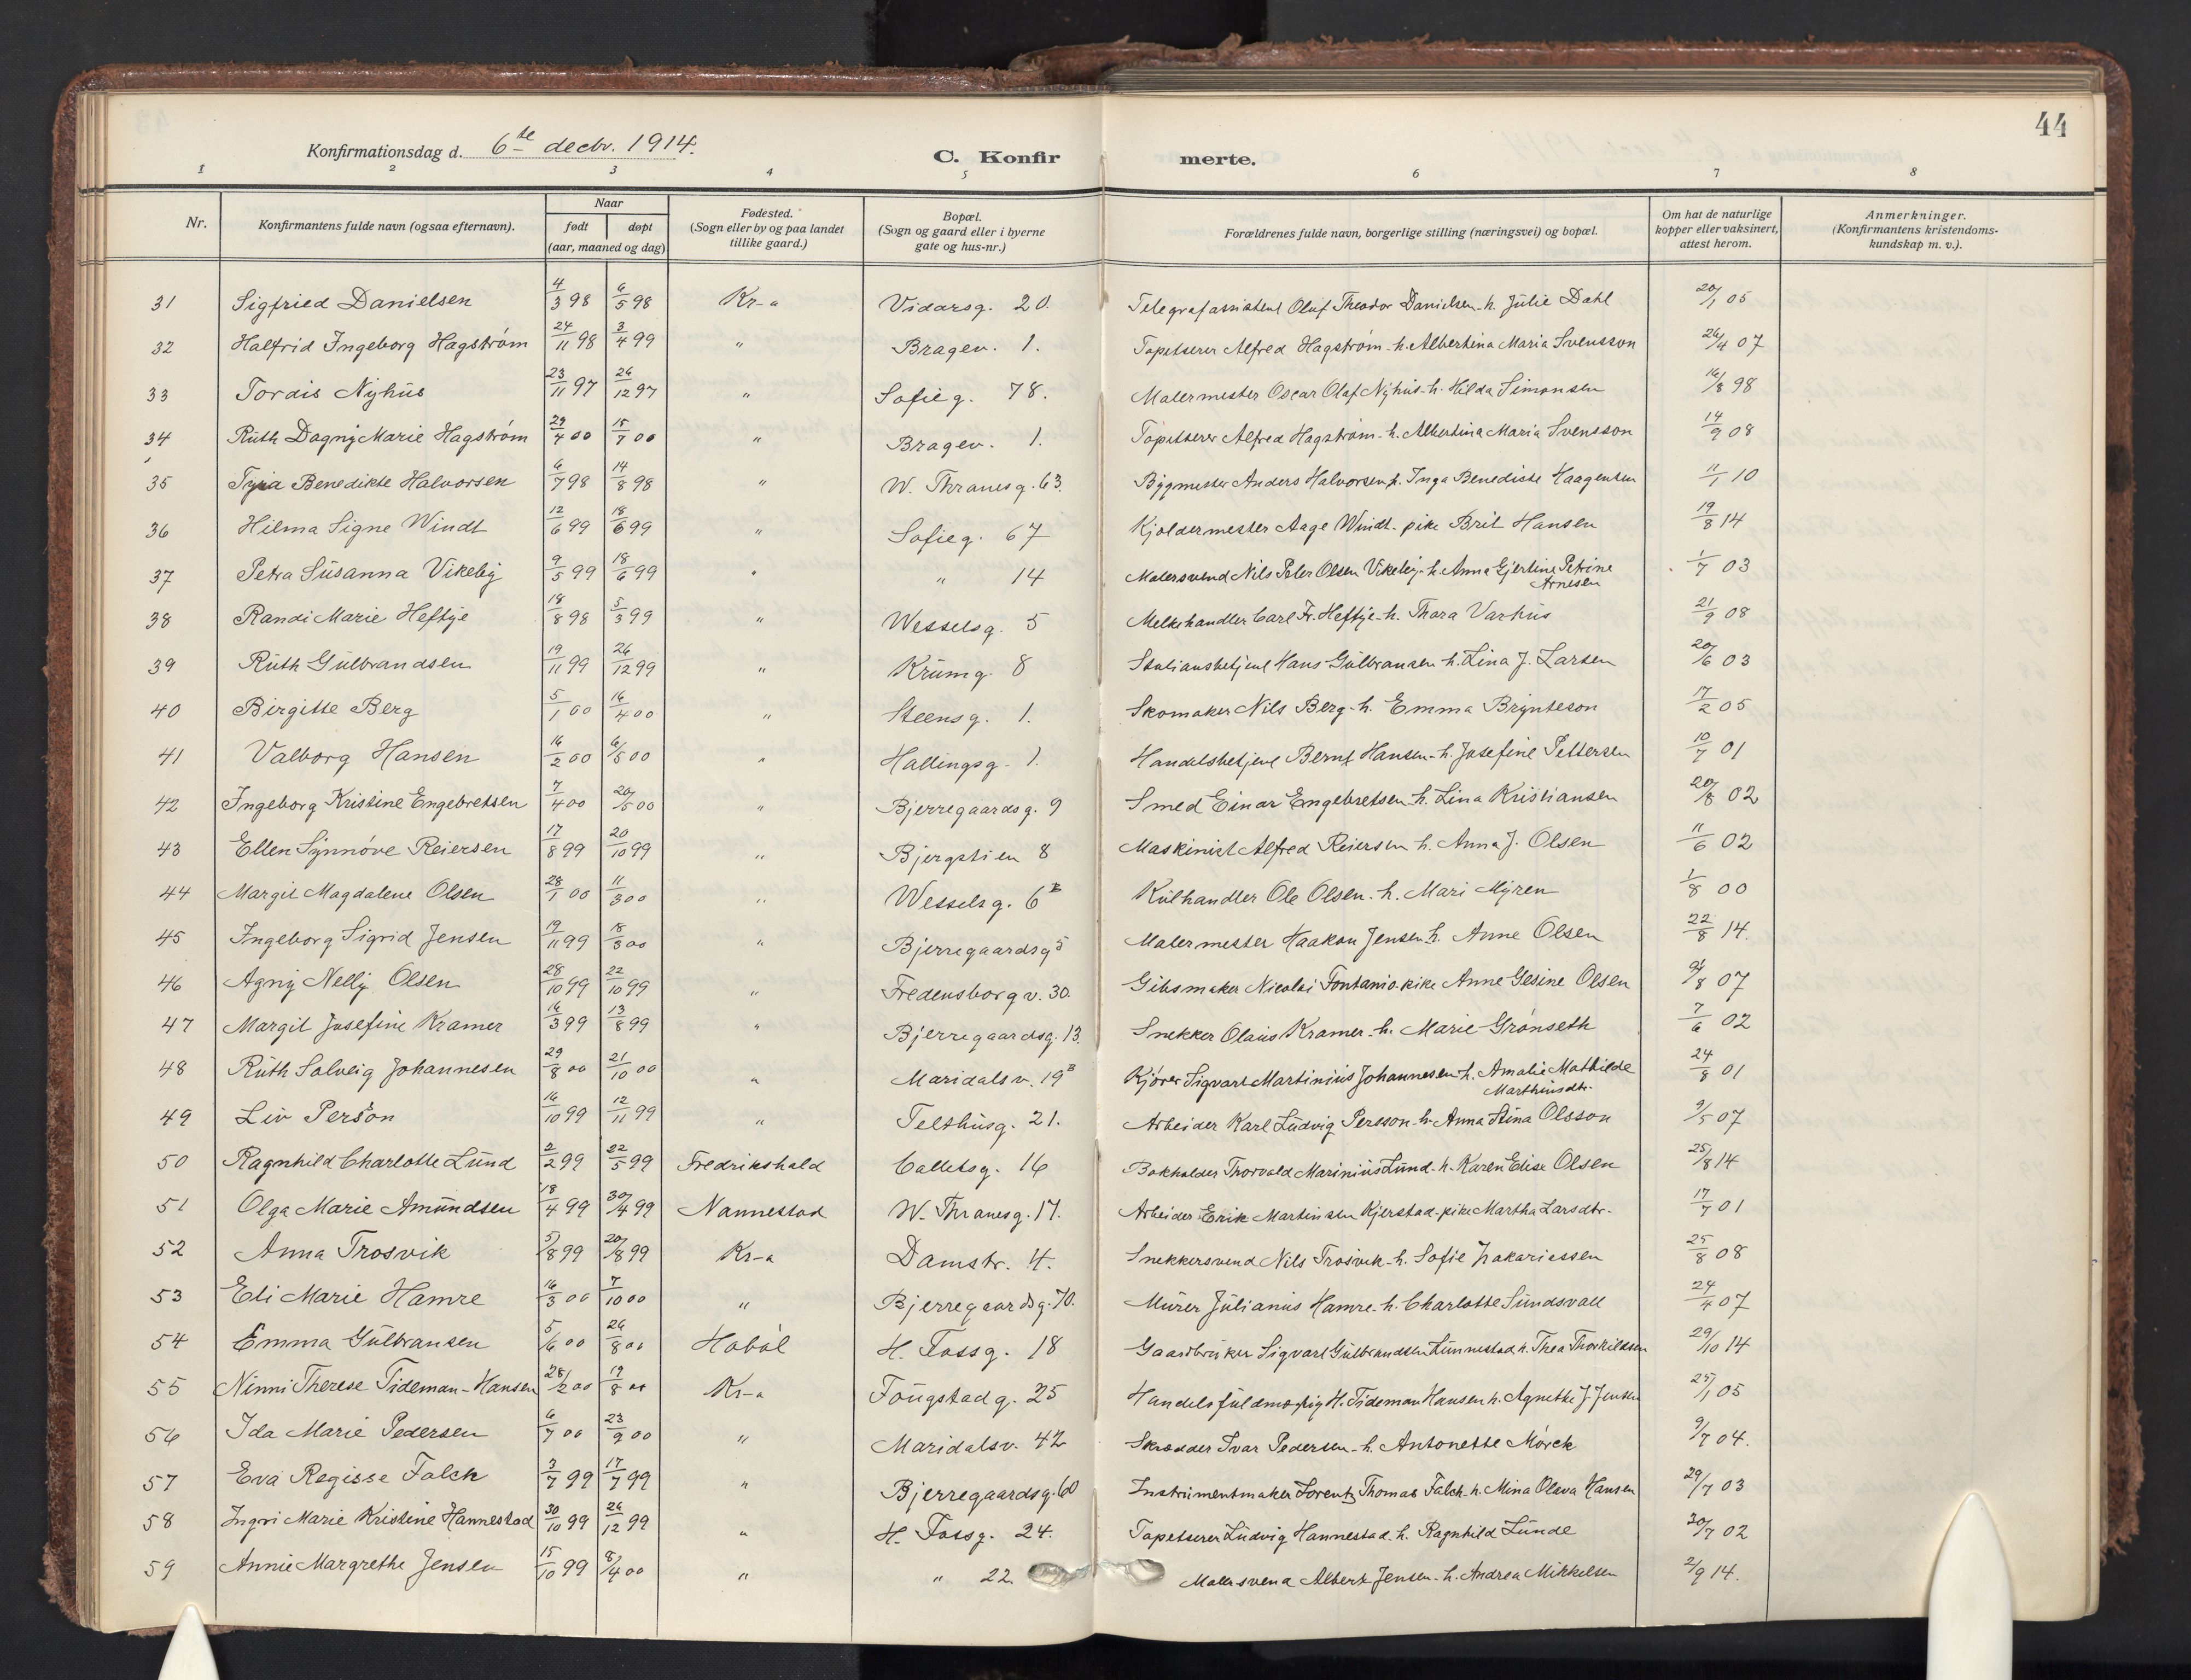 44
Konfirmationsdag d. 6te decbr. 1914.
C. Konfir merte.
1 2 3 4 5 6 7 8
Nr. | Konfirmantens fulde navn (ogsaa efternavn). | Naar født døpt (aar, maaned og dag) | Fødested. (Sogn eller by og paa landet tillike gaard.) | Bopæl. (Sogn og gaard eller i byerne gate og hus-nr.) | Forældrenes fulde navn, borgerlige stilling (næringsvei) og bopæl. | Om hat de naturlige kopper eller vaksinert, attest herom. | Anmerkninger. (Konfirmantens kristendomskundskap m. v.).
31 Sigfried Danielsen 4/3 98 6/5 98 Kr-a Vidarsg. 20. Telegrafassistent Oluf Theodor Danielsen - h. Julie Dahl 20/1 05
32 Halfrid Ingeborg Hagstrøm 24/11 98 3/4 99 " Bragev. 1. Tapetserer Alfred Hagstrøm - h. Albertina Maria Svensson 26/4 07
33 Tordis Nyhus 23/11 97 26/12 97 " Sofieg. 78. Malermester Oscar Olaf Nyhus - h. Hilda Simonsen 16/8 98
34 Ruth Dagny Marie Hagstrøm 29/4 00 15/7 00 " Bragev. 1. Tapetserer Alfred Hagstrøm - h. Albertina Maria Svensson 14/9 08
35 Benedikte Halvorsen 6/7 98 14/8 98 " W. Thranesg. 63. Bygmester Anders Halvorsen h. Inga Benedicte Haagensen 11/1 10
36 Hilma Signe Windt 12/6 99 18/6 99 " Sofieg. 67 Kjoldermester Aage Windt - pike Brit Hansen 19/8 14
37 Petra Susanna Vikeby 9/5 99 18/6 99 " " 14 Malersvend Nils Peter Olsen Vikeby - h. Anna Gjertine Petrine Arnesen 1/7 03
38 Randi Marie Heftye 18/8 98 5/3 99 " Wesselsg. 5 Melkehandler Carl Fr. Heftye - h. Thora Varhus 21/9 08
39 Ruth Gulbrandsen 19/11 99 26/12 99 " Krumg. 8 Stationsbetjent Hans Gulbransen h. Lina J. Larsen 20/6 03
40 Birgitte Berg 5/1 00 16/4 00 " Steensg. 1. Skomaker Nils Berg - h. Emma Brynteson 17/2 05
41 Valborg Hansen 16/2 00 6/5 00 " Hallingsg. 1. Handelsbetjent Bernt Hansen - h. Josefine Pettersen 10/7 01
42 Ingeborg Kristine Engebretsen 7/4 00 20/5 00 " Bjerregaardsg. 9 Smed Einar Engebretsen - h. Lina Kristiansen 20/8 02
43 Ellen Synnøve Reiersen 17/8 99 20/10 99 " Bjergstien 8 Maskinist Alfred Reiersen h. Anna J. Olsen 11/6 02
44 Margit Magdalene Olsen 28/1 00 11/3 00 " Wesselsg. 6B Kulhandler Ole Olsen - h. Mari Myren 1/8 00
45 Ingeborg Sigrid Jensen 19/11 99 18/3 00 " Bjerregaardsg 5 Malermester Haakon Jensen h. Anne Olsen 22/8 14.
46 Agny Nelly Olsen 28/10 99 22/10 99 " Fredensborgv. 30. Gibsmaker Nicolai Fontanio - pike Anne Gesine Olsen 9/8 07
47 Margit Josefine Kramer 16/3 99 13/8 99 " Bjerregaardsg. 13. Snekker Olaus Kramer - h. Marie Grønseth 7/6 02
48 Ruth Solveig Johannesen 29/8 00 21/10 00 " Maridalsv. 19B Kjører Sigvart Martinius Johannesen - h. Amalie Mathilde Marthinsdtr. 24/8 01
49 Liv Person 16/10 99 12/11 99 " Telthusg. 21. Arbeider Karl Ludvig Persson - h. Anna Stina Olsson 9/5 07
50 Ragnhild Charlotte Lund 2/2 99 22/5 99 Fredrikshald Calletsg. 16 Bokholder Thorvald Marinius Lund - h. Karen Elise Olsen 25/8 14
51 Olga Marie Amundsen 18/4 99 30/4 99 Nannestad W. Thranesg. 17. Arbeider Erik Martinsen Kjerstad - pike Martha Larsdtr. 17/7 01
52 Anna Trosvik 5/8 99 20/8 99 Kr-a Damstr. 4. Snekkersvend Nils Trosvik - h. Sofie Zakariassen 25/8 08
53 Eli Marie Hamre 16/3 00 7/10 00 " Bjerregaardsg. 70. Murer Julianus Hamre - h. Charlotte Sundsvall 24/4 07
54 Emma Gulbransen 5/6 00 26/8 00 Hobøl H. Fossg. 18 Gaardbruker Sigvart Gulbrandsen Lunnestad h. Thea Thorkildsen 29/10 14
55 Ninni Therese Tideman-Hansen 28/2 00 19/8 00 Kr-a Fougstadg. 25 Handelsfuldmægtig H. Tideman Hansen h. Agnethe J. Jensen 25/1 05
56 Ida Marie Pedersen 6/7 00 23/9 00 " Maridalsv. 42 Skrædder Ivar Pedersen - h. Antonette Mørck 9/7 04.
57 Eva Regisse Falck 3/7 99 17/7 99 " Bjerregaardsg. 60 Instrumentmaker Lorentz Thomas Falch - h. Mina Oleva Hansen 29/7 03
58 Ingri Marie Kristine Hannestad 30/10 99 26/12 99 " H. Fossg. 24. Tapetserer Ludvig Hannestad - h. Ragnhild Lunde 30/7 02
59 Annie Margrethe Jensen 15/10 99 8/4 00 " " 22. Malersvend Albert Jensen - h. Andrea Mikkelsen 2/9 14.